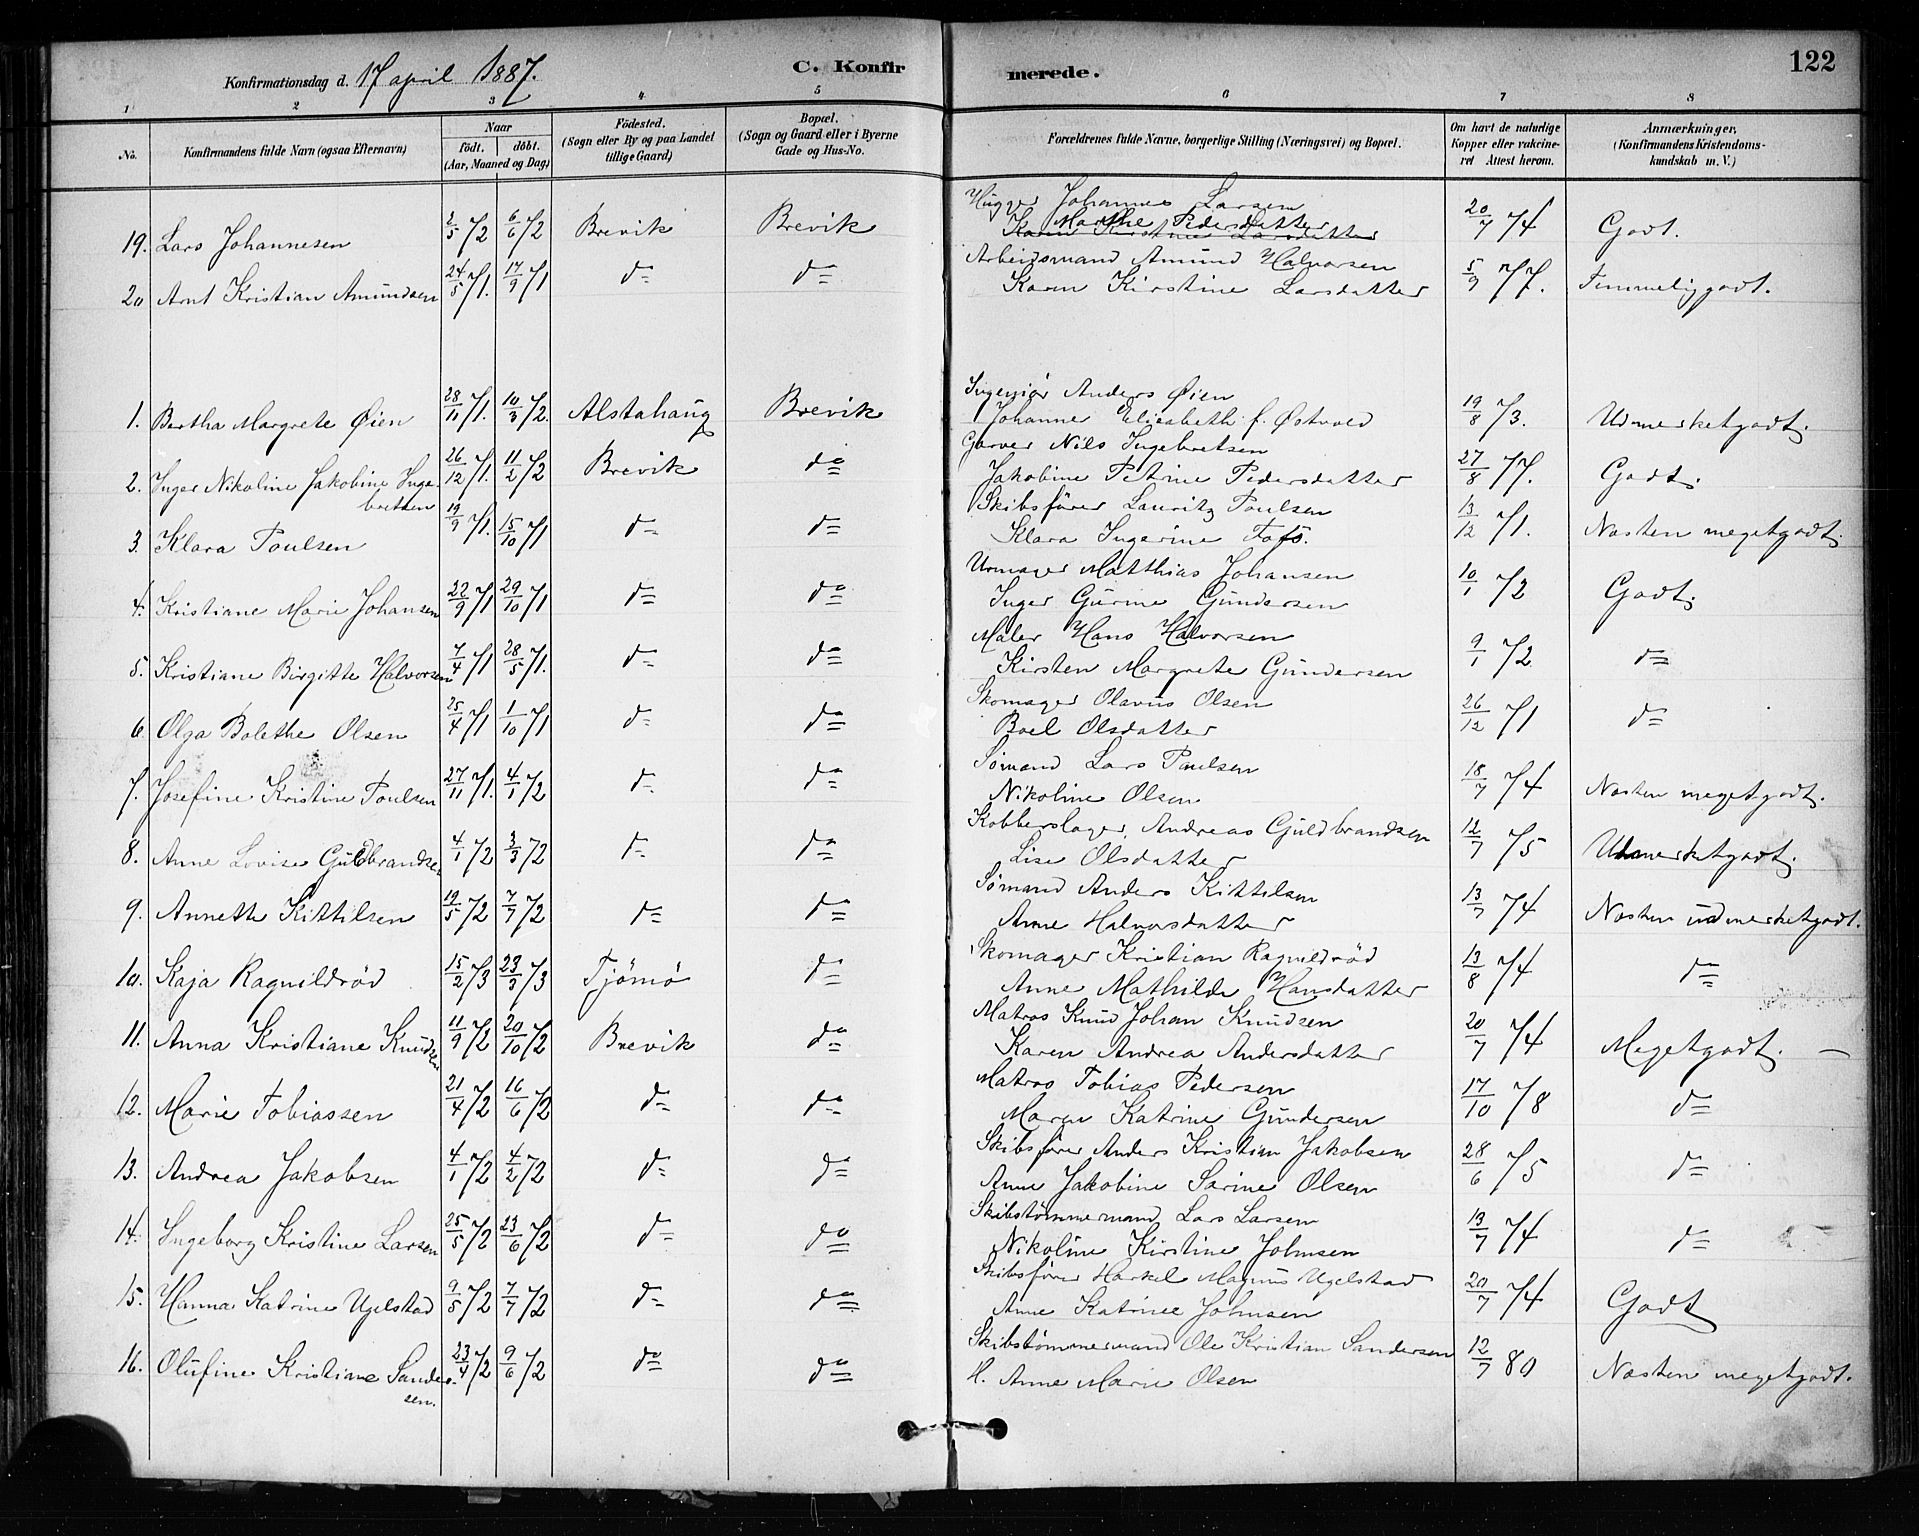 Konfirmationsdag d. 17 april 1887.
C. Konfirmerede.
122
1 2 3 4 5 6 7 8
No.
Konfirmandens fulde Navn (ogsaa Efternavn)
Naar
født. døbt.
(Aar, Maaned og Dag)
Fødested.
(Sogn eller By og paa Landet
tillige Gaard)
Bopæl.
(Sogn og Gaard eller i Byerne
Gade og Hus-No.
Forældrenes fulde Navne, borgerlige Stilling (Næringsvei) og Bopæl.
Om havt de naturlige
Kopper eller vakcine-
ret Attest herom.
Anmærkninger,
(Konfirmandens Kristendoms-
kundskab m. V.)
19. Lars Johannesen 2/5 72 6/6 72 Brevik Brevik Johannes Larsen 20/7 74 Godt.
Marthe Pedersdatter
Karen Kirstine Larsdatter
20 Arnt Kristian Amundsen 24/5 71. 17/9 71 do do Arbeidsmand Amund Halvorsen 5/9 77. Temmelig godt.
Karen Kirstine Larsdatter
1. Bertha Margrete Øien 28/11 71. 10/3 72. Alstahaug Brevik Ingeniør Anders Øien 19/8 73. Udmerket godt.
Johanne Elisabeth f. Østvold
2. Inger Nikoline Jakobine Inge-
bretsen 26/12 71. 11/2 72 Brevik do Garver Nils Ingebretsen 27/8 77. Godt.
Jakobine Petrine Pedersdatter
3. Klara Poulsen 19/9 71. 15/10 71 do do Skibsfører Lauritz Poulsen 13/12 71. Næsten meget godt.
Klara Ingerine
4. Kristiane Marie Johansen 22/9 71 29/10 71 do do Urmager Matthias Johansen 10/1 72 Godt.
Inger Gurine Gundersen
5. Kristiane Birgitte Halvorsen 7/4 71 28/5 71. do do Maler Hans Halvorsen 9/1 72 do
Kirsten Margrete Gundersen
6. Olga Bolethe Olsen 25/4 71 1/10 71 do do Skomager Olavus Olsen 26/12 71 do
Boel Olsdatter
7. Josefine Kristine Poulsen 27/11 71. 4/1 72 do do Sømand Lars Paulsen 18/7 74 Næsten meget godt.
Nikoline Olsen
8. Anne Lovise Guldbrandsen 4/1 72 3/3 72 do do Kobberslager Andreas Guldbrandsen 12/7 75 Udmerket godt.
Lise Olsdatter
9. Annette Kittilsen 19/5 72 7/7 72 do do Sømand Anders Kittilsen 13/7 74 Næsten udmerket godt.
Anne Halvorsdatter
10. Kaja Ragnildrød 15/2 73 23/3 73 Tjømø do Skomager Kristian Ragnildrød 13/8 74 do
Anne Mathilde Hansdatter
11. Anna Kristiane Knudsen 11/9 72 20/10 72 Brevik do Matros Knud Johan Knudsen 20/7 74 Meget godt. —
Karen Andrea Andersdatter
12. Marie Tobiassen 21/4 72 16/6 72 do do Matros Tobias Pedersen 17/10 78 do
Maren Katrine Gundersen
13. Andrea Jakobsen 4/1 72 4/2 72 do do Skibsfører Anders Kristian Jakobsen 28/6 75 do
Anne Jakobine Sørine Olsen
14. Ingeborg Kristine Larsen 25/5 72 23/6 72 do do Skibstømmermand Lars Larsen 13/7 74 do
Nikoline Kirstine Johnsen
15. Hanna Katrine Ugelstad 9/5 72 7/7 72 do do Skibsfører Harkel Magnus Ugelstad 20/7 74 Godt
Anne Katrine Johnsen
16. Olufine Kristiane Sander-
sen. 23/4 72 9/6 72 do do Skibstømmermand Ole Kristian Sandersen 12/7 80 Næsten meget godt.
H. Anne Marie Olsen